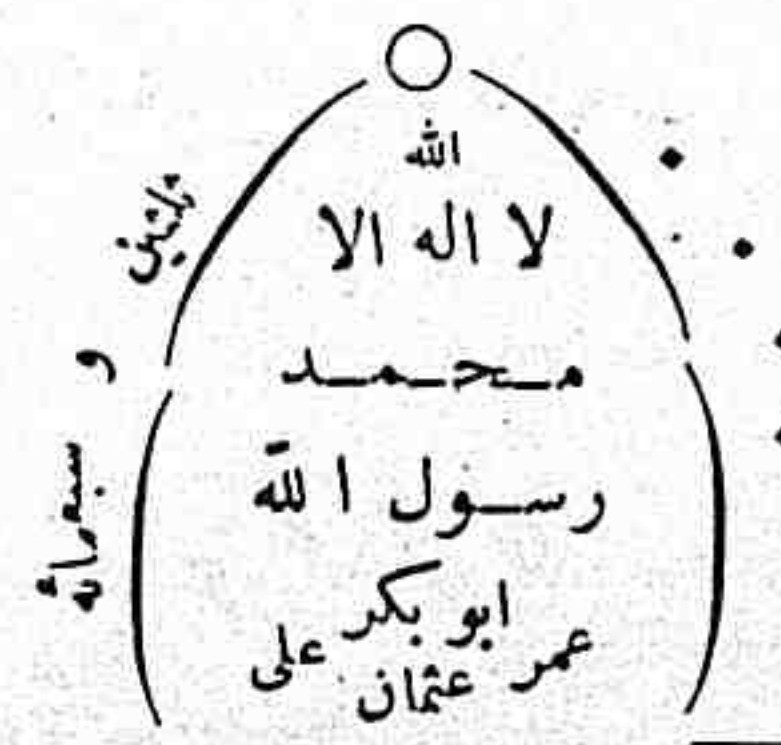 الله
لا اله الا
محمد
رسول الله
ابو بكر
عمر عثمان على
ثلثين
و
سبعمائه